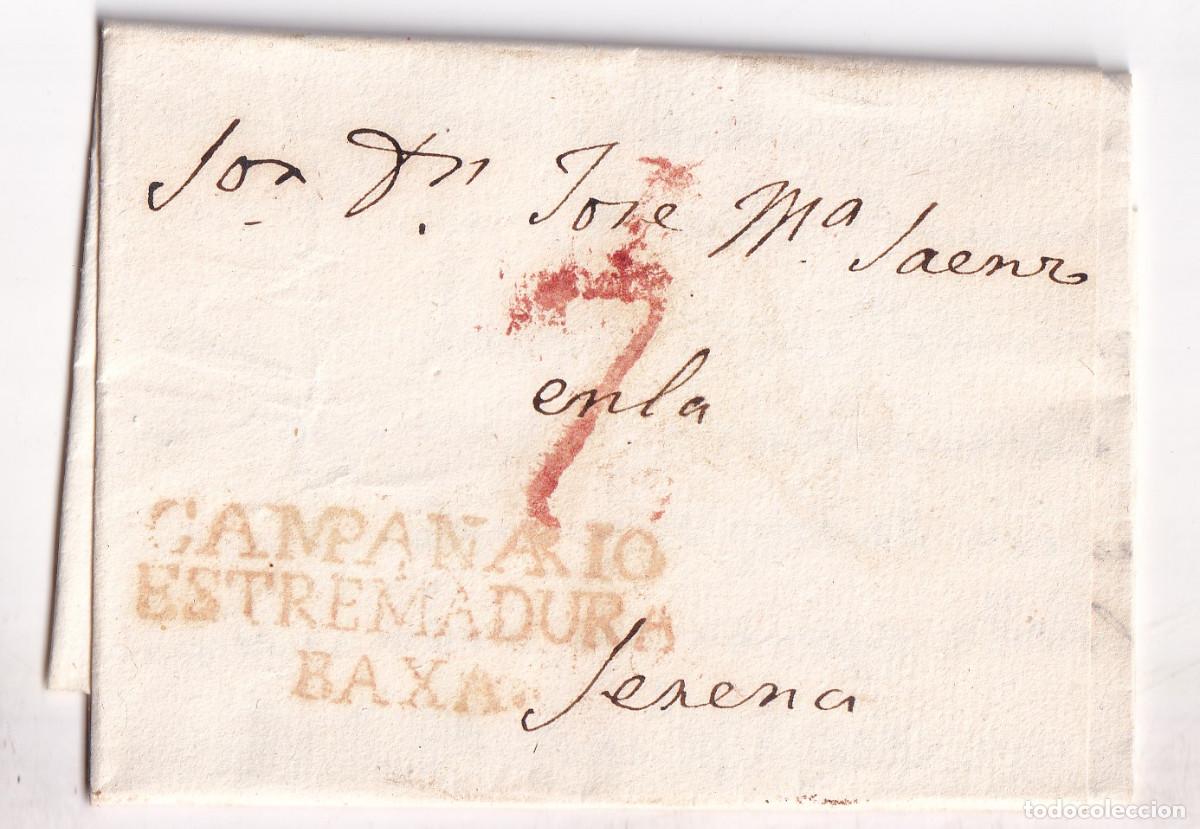 Sor Dn. Jose Ma. Saenz
7
enla
CAMPAÑARIO
ESTREMADURA
BAXA.
Serena
todocoleccion